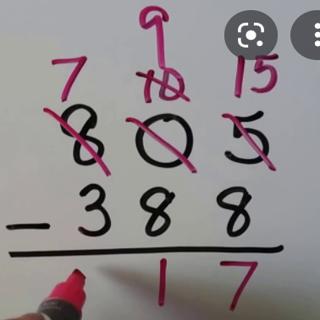 9
7 10 15
8 0 5
- 3 8 8
1 7